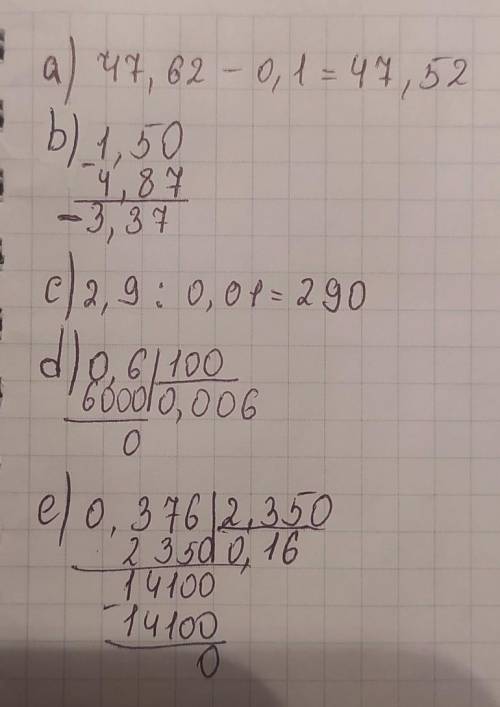 a) 47,62 - 0,1 = 47,52
b) -1,50
4,87
-3,37
c) 2,9 : 0,01 = 290
d) 0,6 | 100
6000 | 0,006
0
e) 0,376 | 2,350
2350 | 0,16
14100
-14100
0